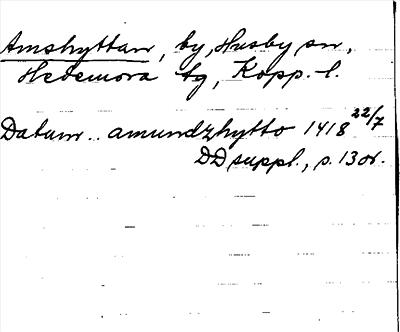 Amshyttan, by, Husby sn,
Hedemora tg, Kopp. l.
Datum.. amundzhytto 1418 22/7
DD suppl., s. 130.